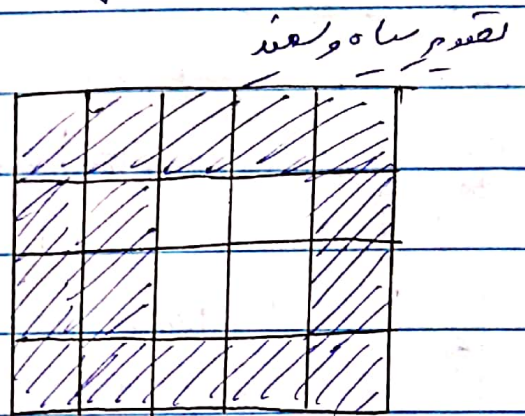 تصویر سیاه و سفید